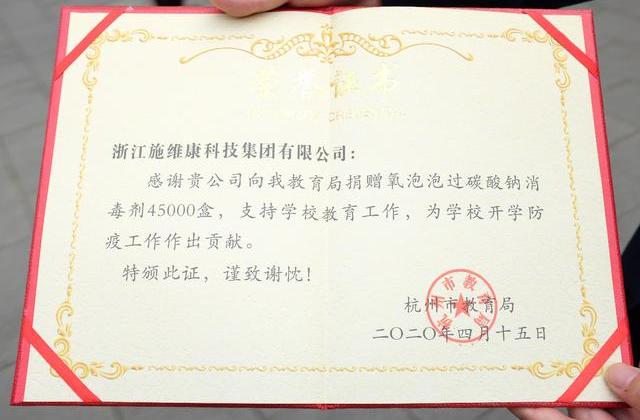 荣誉证书
浙江施维康科技集团有限公司：
感谢贵公司向我教育局捐赠氧泡泡过碳酸钠消
毒剂45000盒，支持学校教育工作，为学校开学防
疫工作作出贡献。
特颁此证，谨致谢忱！
杭州市教育局
二〇二〇年四月十五日
杭州市教育局